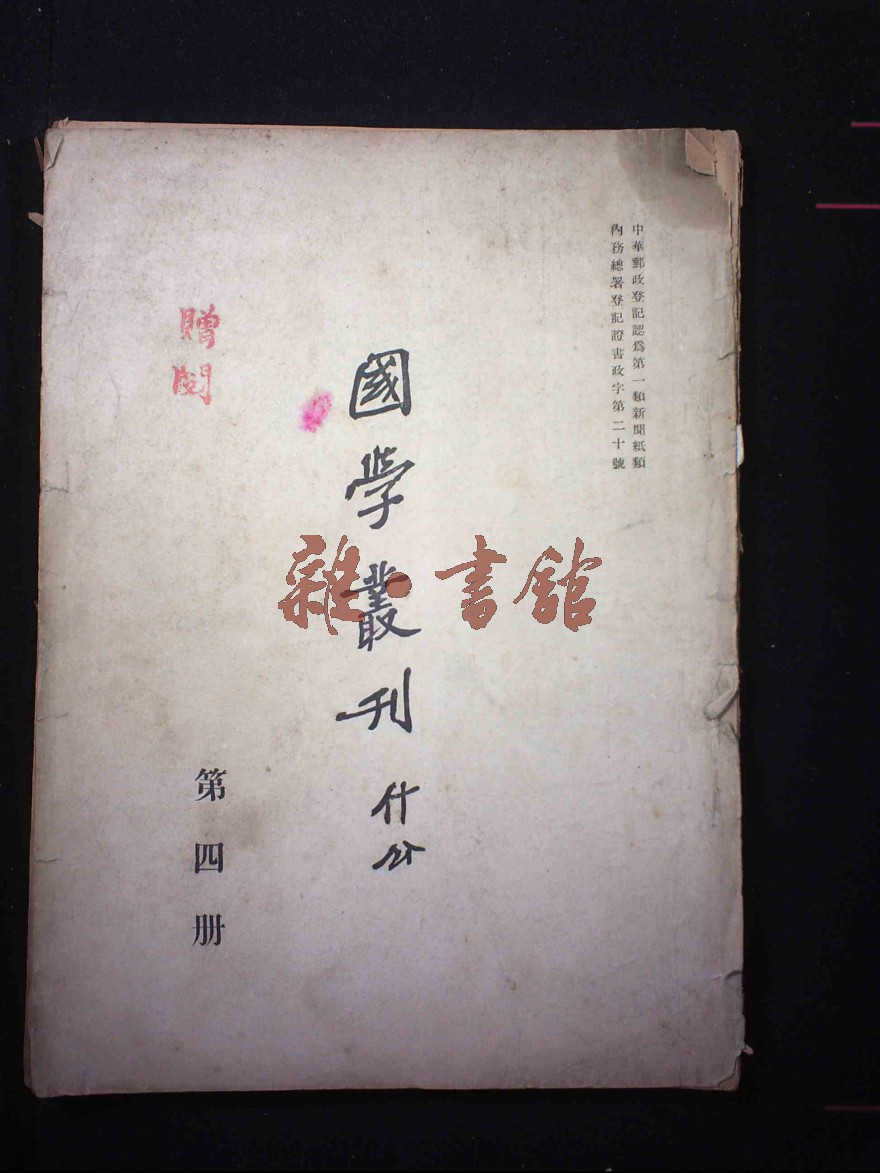 中華郵政登記認爲第一類新聞紙類
內務總署登記證書政字第二十號
國學叢刊
什公
第四册
贈閱
雜·書館